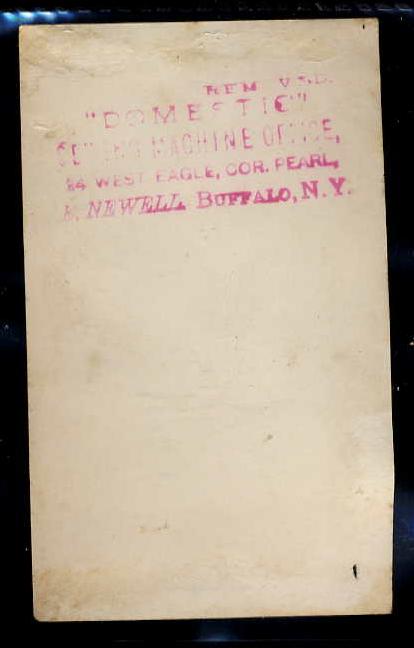 REM V S D.
"DOMESTIC"
SEWING MACHINE OFFICE,
24 WEST EAGLE, COR. PEARL,
NEWELL BUFFALO, N. Y.